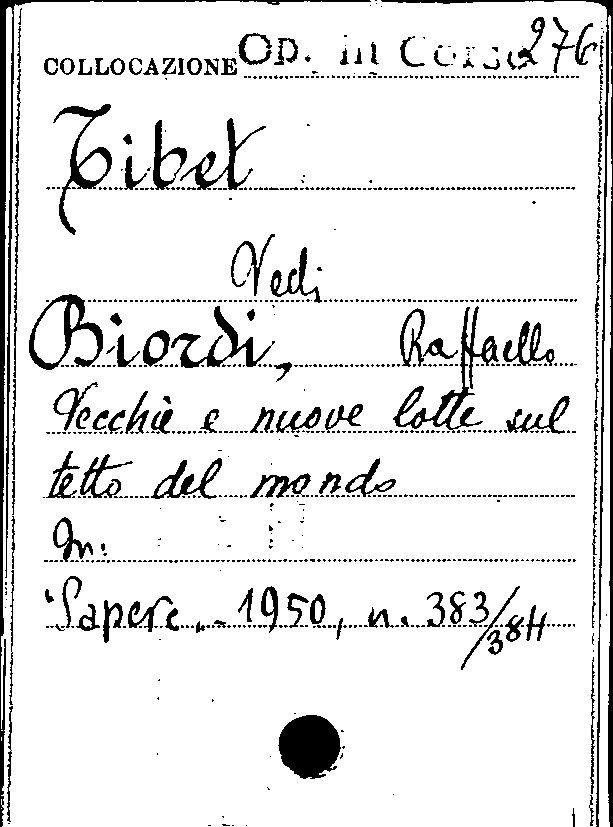 COLLOCAZIONE Op. in Corso 276
Tibet
Vedi
Biordi, Raffaello
Vecchie e nuove lotte sul
tetto del mondo
In:
"Sapere" - 1950, n. 383/384